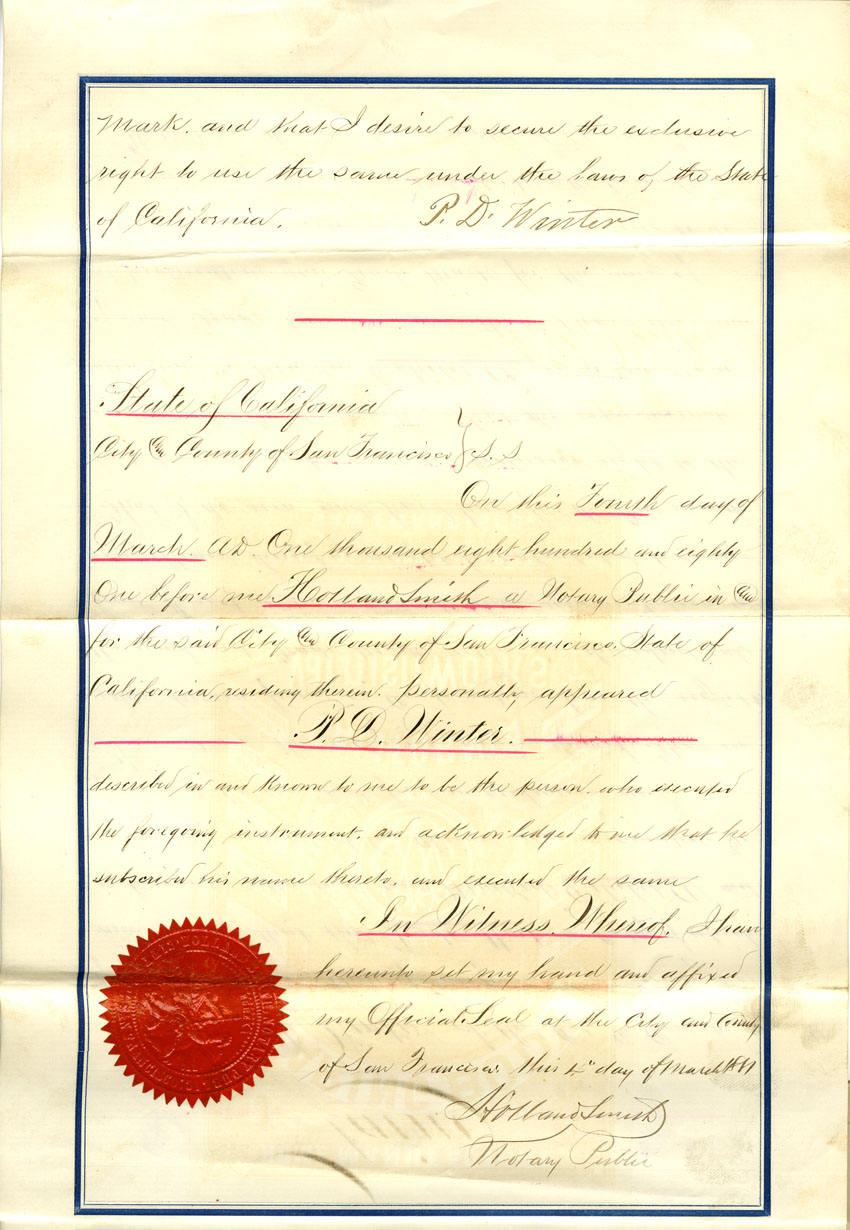 Mark. and that I desire to secure the exclusive
right to use the same under the laws of the State
of California. P. D. Winter
State of California
City & County of San Francisco } S.S
On this Fourth day of
March. A.D. One thousand eight hundred and eighty
One before me Holland Smith a Notary Public in &
for the said City & County of San Francisco. State of
California, residing therein. personally appeared
P. D. Winter.
described in and known to me to be the person who executed
the foregoing instrument. and acknowledged to me that he
subscribed his name thereto. and executed the same
In Witness Whereof. I have
hereunto set my hand and affixed
my Official Seal at the City and County
of San Francisco. this 4" day of March 1881
Holland Smith
Notary Public